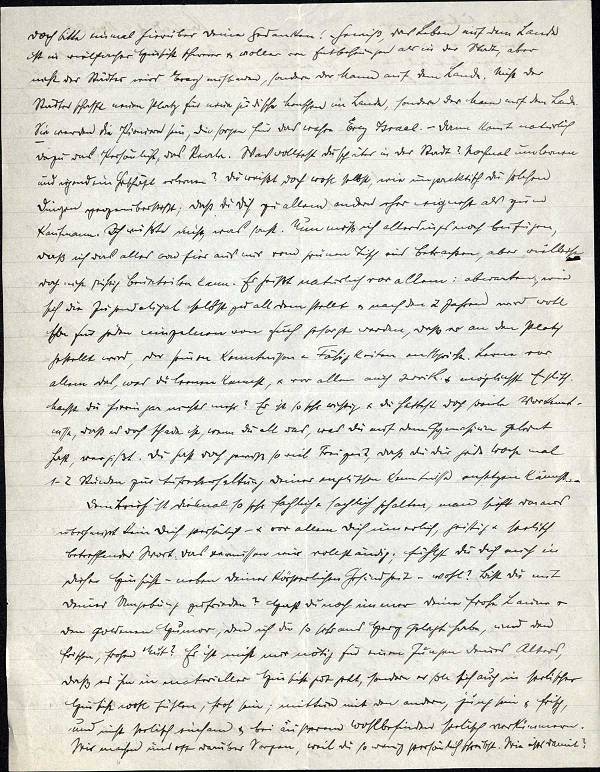 doch bitte einmal hierüber Deine Gedanken! Gewiß, das Leben auf dem Lande
ist in vielfacher Hinsicht schwerer & voller an Entbehrungen als in der Stadt, aber
nicht der Städter wird Erez aufbauen, sondern der Mann auf dem Lande. Nicht der
Städter schafft neuen Platz für neue jüdische Menschen im Lande, sondern der Mann auf dem Lande.
Sie werden die Pioniere sein, die sorgen für das wahre Erez Israel. – Dann kommt natürlich
dazu das Persönliche, das Reale. Was wolltest Du später in der Stadt? Nochmal umlernen
und irgend ein Geschäft erlernen? Du weißt doch wohl selbst, wie unpraktisch Du solchen
Dingen gegenüberstehst, daß Du Dich zu allem andern eher eignest als zum
Kaufmann. Ich wüßte nicht, was sonst. Nun muß ich allerdings noch beifügen,
daß ich das alles von hier aus nur vom grünen Tisch aus betrachte, aber vielleicht
doch nicht richtig beurteilen kann. Es heißt natürlich vor allem: abwarten, wie
sich die Jugendalijah selbst zu all dem stellt & nach den 2 Jahren wird wohl
schon für jeden einzelnen von Euch gesorgt werden, daß er an den Platz
gestellt wird, der seinen Kenntnissen & Fähigkeiten entspricht. Lerne vor
allem das, was Du lernen kannst, & vor allem auch Iwrith & möglichst Englisch.
Machst Du hierin gar nichts mehr? Es ist so sehr wichtig & Du hattest doch schöne Vorkennt-
nisse, daß es doch schade ist, wenn Du all das, was Du auf dem Gymnasium gelernt
hast, vergißt. Du hast doch gewiß so viel Freizeit, daß Du Dir jede Woche mal
1-2 Stunden zur Aufrechterhaltung Deiner englischen Kenntnisse ansetzen könntest. –
Dein Brief ist diesmal so sehr sachlich & sachlich gehalten, man sieht daraus
überhaupt kein Dich persönlich – & vor allem Dich innerlich, geistig & seelisch
betreffendes Wort, das vermissen wir vollständig. Fühlst Du Dich auch in
dieser Hinsicht – neben Deiner körperlichen Gesundheit – wohl? Bist Du mit
Deiner Umgebung zufrieden? Hast Du noch immer Deine frohe Laune &
den goldenen Humor, den ich Dir so sehr ans Herz gelegt habe, und den
frischen, frohen Mut? Es ist nicht nur nötig für einen Jungen Deines Alters,
daß es ihm in materieller Hinsicht gut geht, sondern er soll sich auch in seelischer
Hinsicht wohl fühlen, froh sein, mitten mit den andern, jung sein & frisch,
und nicht seelisch einsam & bei äußerem Wohlbefinden seelisch verkümmern.
Wir machen uns oft darüber Sorgen, weil Du so wenig persönlich schreibst. Wie ists damit?